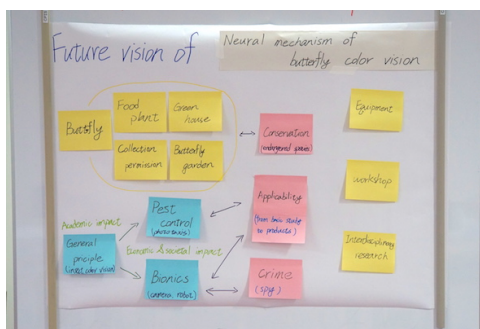 Future vision of
Neural mechanism of
butterfly color vision
Butterfly
Food
plant
Green
house
Collection
permission
Butterfly
garden
Conservation
(endangered species)
Equipment
workshop
Interdisciplinary
research
Academic impact
General
principle
(insect color vision)
Pest
control
(phototaxis)
Economic & societal impact
Bionics
(camera, robot)
Applicability
(from basic study
to products)
Crime
(spy)